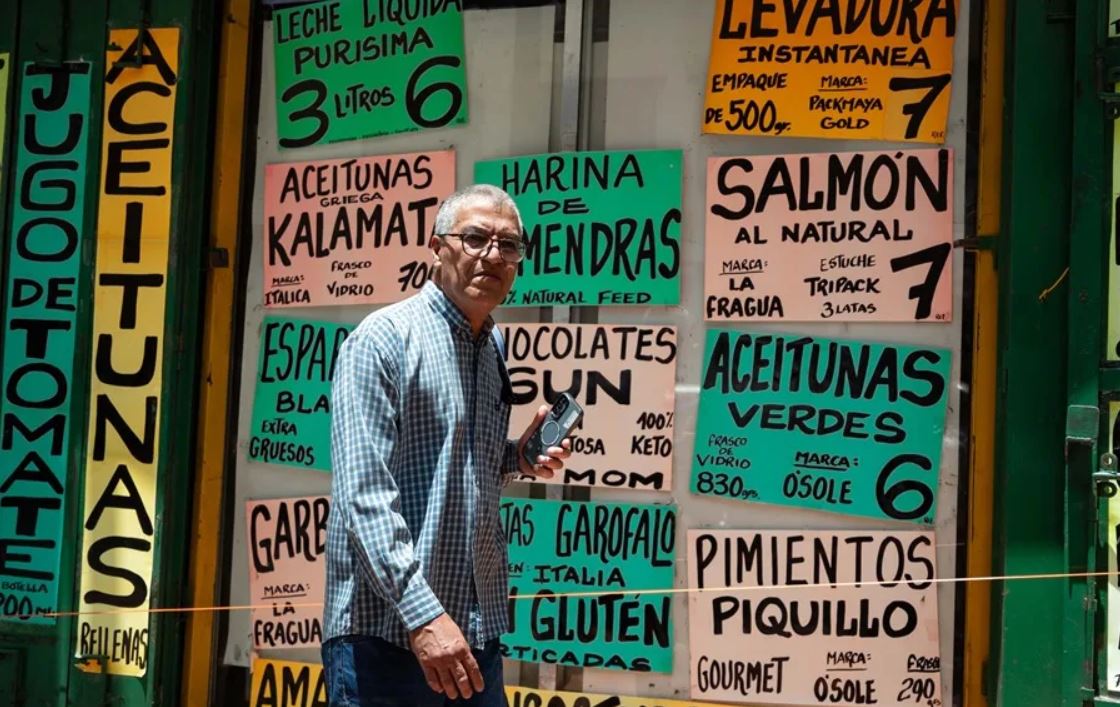 JUGO DE TOMATE
BOTELLA
ACEITUNAS
RELLENAS
LECHE LIQUIDA
PURISIMA
3 LITROS 6
ACEITUNAS
GRIEGA
KALAMATA
MARCA:
ITALICA
FRASCO
DE
VIDRIO
700
EXTRA
GRUESOS
MARCA:
LA
FRAGUA
HARINA
DE
NATURAL FEED
SUN
100%
KETO
MOM
GAROFALO
ITALIA
GLUTÉN
LEVADURA
INSTANTANEA
EMPAQUE
DE 500gr.
MARCA:
PACKMAYA
GOLD
7
SALMÓN
AL NATURAL
MARCA:
LA
FRAGUA
ESTUCHE
TRIPACK
3 LATAS
7
ACEITUNAS
VERDES
FRASCO
DE
VIDRIO
830grs.
MARCA:
O'SOLE
6
PIMIENTOS
PIQUILLO
GOURMET
MARCA:
O'SOLE
FRASCO
290